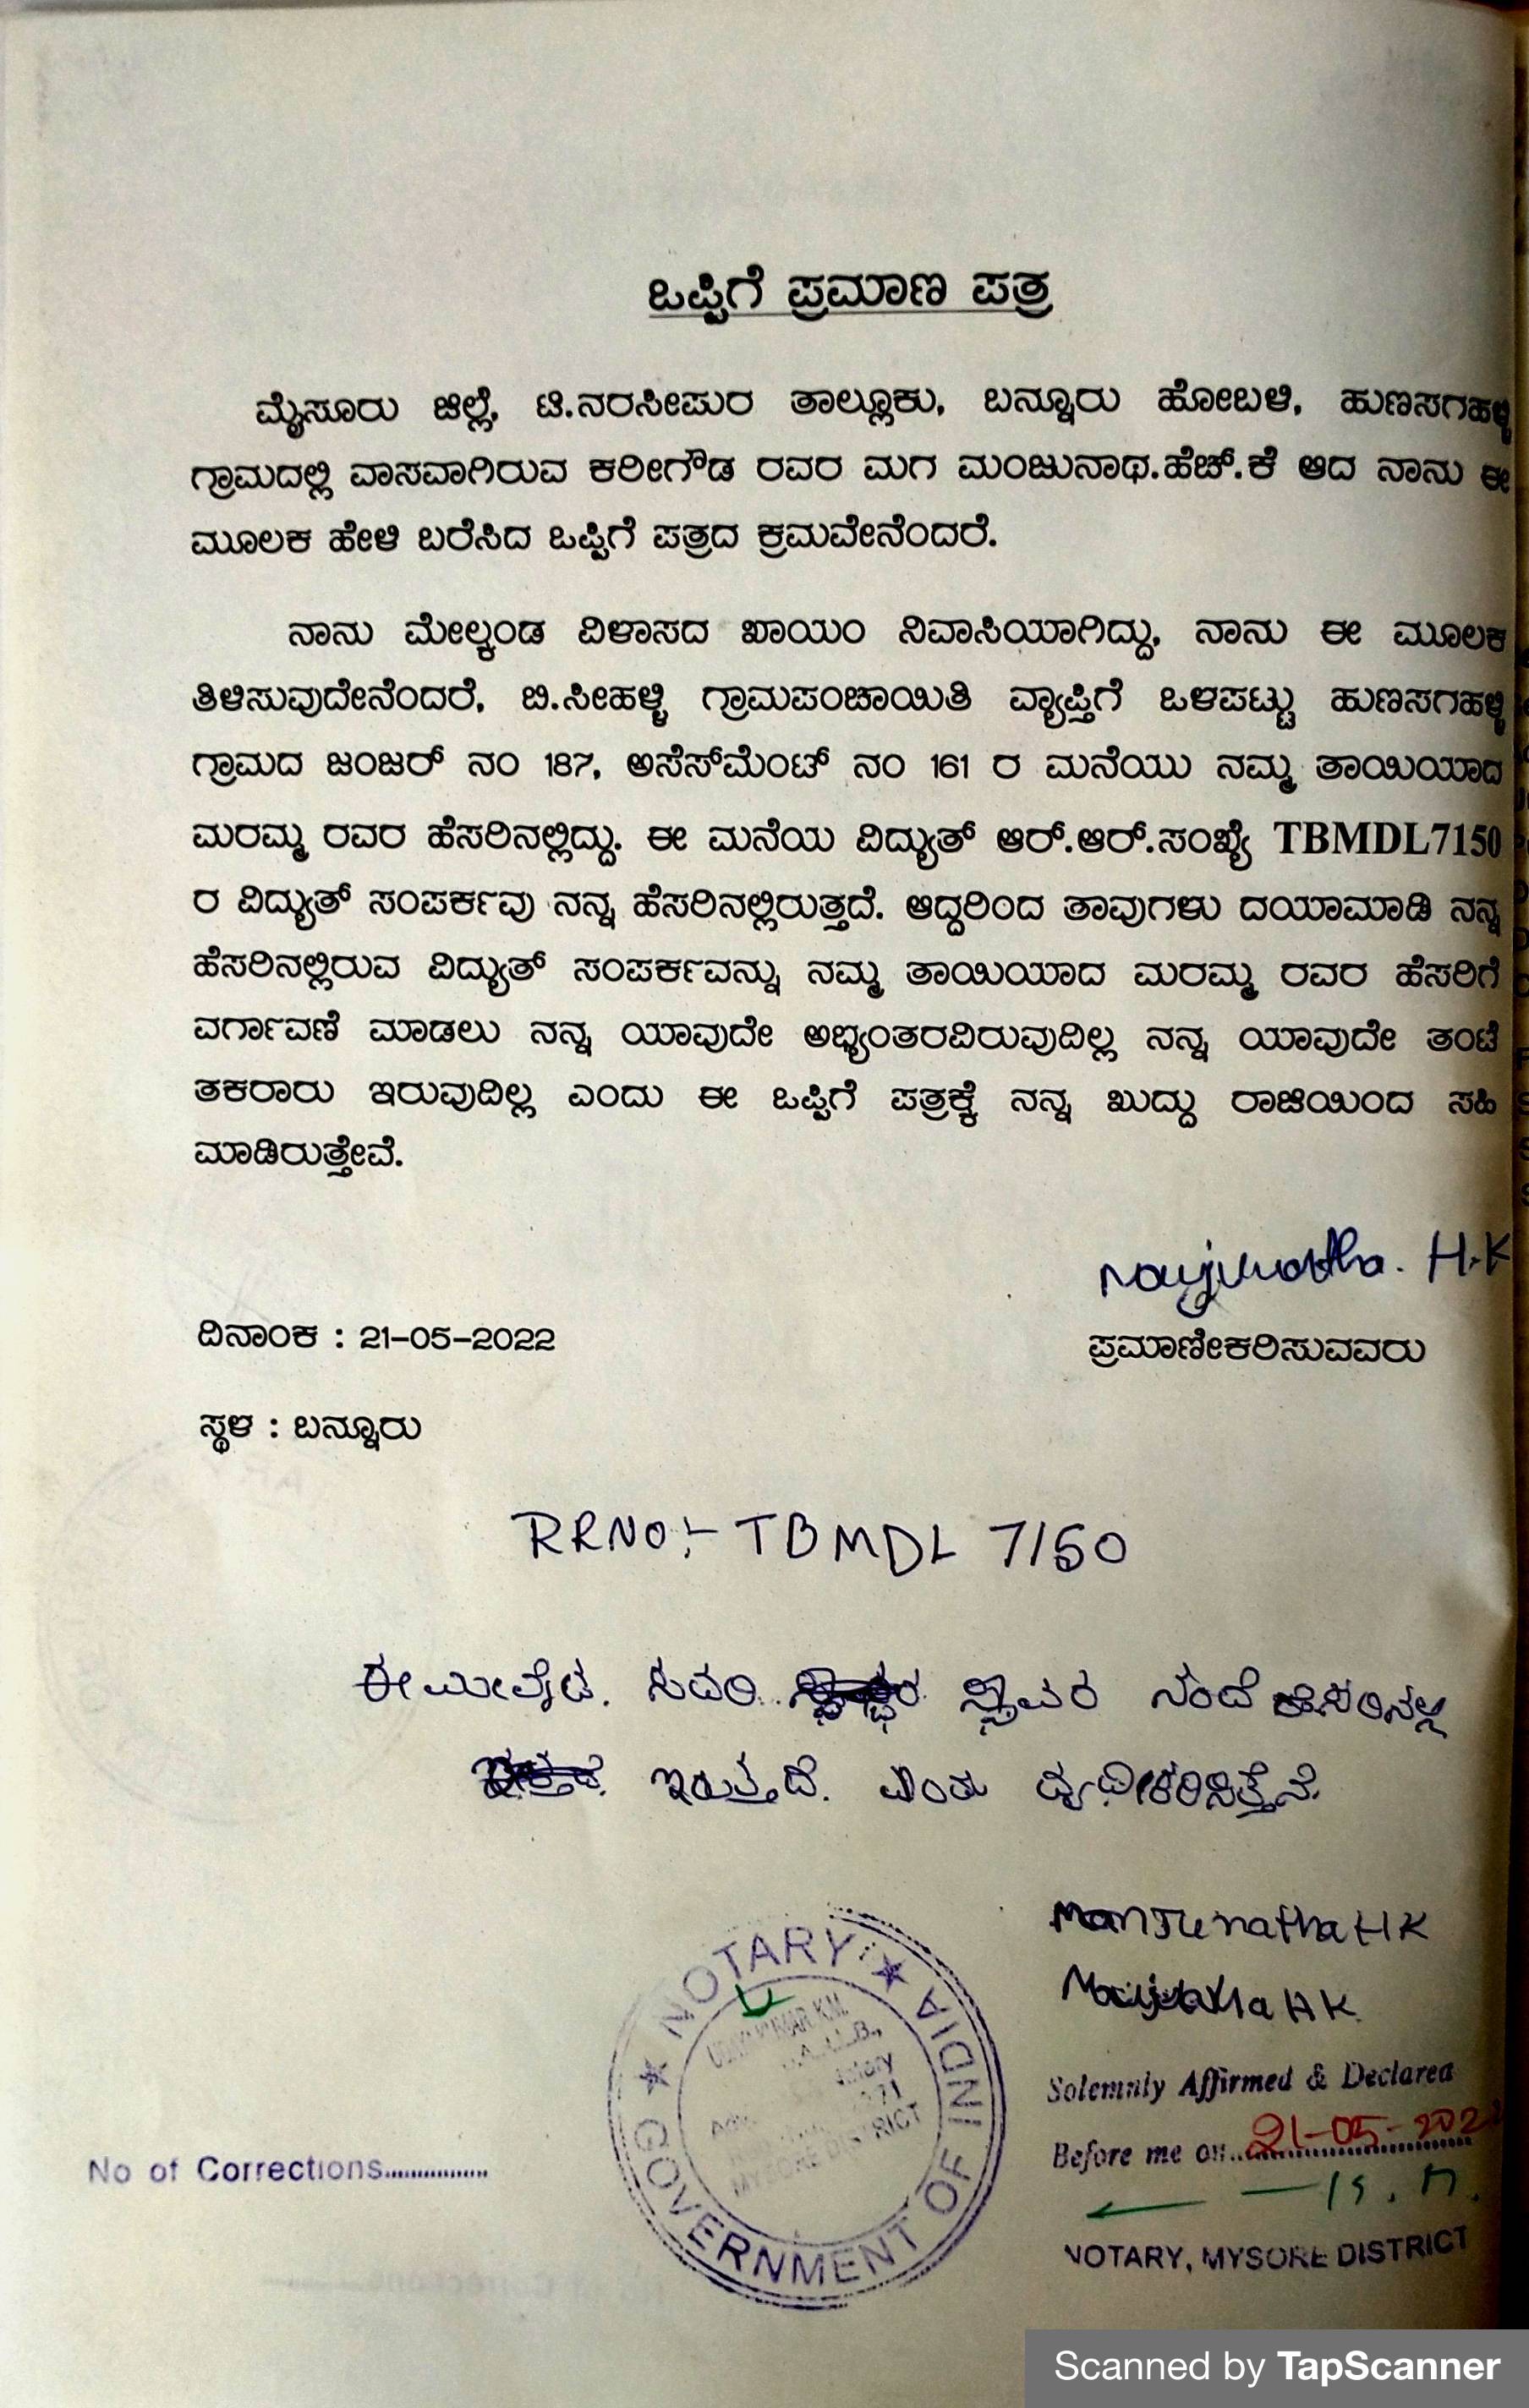 ಒಪ್ಪಿಗೆ ಪ್ರಮಾಣ ಪತ್ರ
ಮೈಸೂರು ಜಿಲ್ಲೆ, ಟಿ.ನರಸೀಪುರ ತಾಲ್ಲೂಕು, ಬನ್ನೂರು ಹೋಬಳಿ, ಹುಣಸಗಹಳ್ಳಿ
ಗ್ರಾಮದಲ್ಲಿ ವಾಸವಾಗಿರುವ ಕರೀಗೌಡ ರವರ ಮಗ ಮಂಜುನಾಥ.ಹೆಚ್.ಕೆ ಆದ ನಾನು ಈ
ಮೂಲಕ ಹೇಳಿ ಬರೆಸಿದ ಒಪ್ಪಿಗೆ ಪತ್ರದ ಕ್ರಮವೇನೆಂದರೆ.
ನಾನು ಮೇಲ್ಕಂಡ ವಿಳಾಸದ ಖಾಯಂ ನಿವಾಸಿಯಾಗಿದ್ದು, ನಾನು ಈ ಮೂಲಕ
ತಿಳಿಸುವುದೇನೆಂದರೆ, ಬಿ.ಸೀಹಳ್ಳಿ ಗ್ರಾಮಪಂಚಾಯಿತಿ ವ್ಯಾಪ್ತಿಗೆ ಒಳಪಟ್ಟು ಹುಣಸಗಹಳ್ಳಿ
ಗ್ರಾಮದ ಜಂಜರ್ ನಂ 187, ಅಸೆಸ್‌ಮೆಂಟ್ ನಂ 161 ರ ಮನೆಯು ನಮ್ಮ ತಾಯಿಯಾದ
ಮರಮ್ಮ ರವರ ಹೆಸರಿನಲ್ಲಿದ್ದು. ಈ ಮನೆಯ ವಿದ್ಯುತ್ ಆರ್.ಆರ್.ಸಂಖ್ಯೆ TBMDL7150
ರ ವಿದ್ಯುತ್ ಸಂಪರ್ಕವು ನನ್ನ ಹೆಸರಿನಲ್ಲಿರುತ್ತದೆ. ಆದ್ದರಿಂದ ತಾವುಗಳು ದಯಾಮಾಡಿ ನನ್ನ
ಹೆಸರಿನಲ್ಲಿರುವ ವಿದ್ಯುತ್ ಸಂಪರ್ಕವನ್ನು ನಮ್ಮ ತಾಯಿಯಾದ ಮರಮ್ಮ ರವರ ಹೆಸರಿಗೆ
ವರ್ಗಾವಣೆ ಮಾಡಲು ನನ್ನ ಯಾವುದೇ ಅಭ್ಯಂತರವಿರುವುದಿಲ್ಲ ನನ್ನ ಯಾವುದೇ ತಂಟೆ
ತಕರಾರು ಇರುವುದಿಲ್ಲ ಎಂದು ಈ ಒಪ್ಪಿಗೆ ಪತ್ರಕ್ಕೆ ನನ್ನ ಖುದ್ದು ರಾಜಿಯಿಂದ ಸಹಿ
ಮಾಡಿರುತ್ತೇವೆ.
Manjunatha. H.K
ದಿನಾಂಕ : 21-05-2022
ಪ್ರಮಾಣೀಕರಿಸುವವರು
ಸ್ಥಳ : ಬನ್ನೂರು
RRNO:- TBMDL 7150
ಇರುತ್ತದೆ. ಎಂದು
ManJunatha H K
Manjunatha H K
Solemnly Affirmed & Declared
Before me on 21-05-2022
NOTARY, MYSORE DISTRICT
No of Corrections................
NOTARY
GOVERNMENT OF INDIA
MYSORE DISTRICT
Scanned by TapScanner